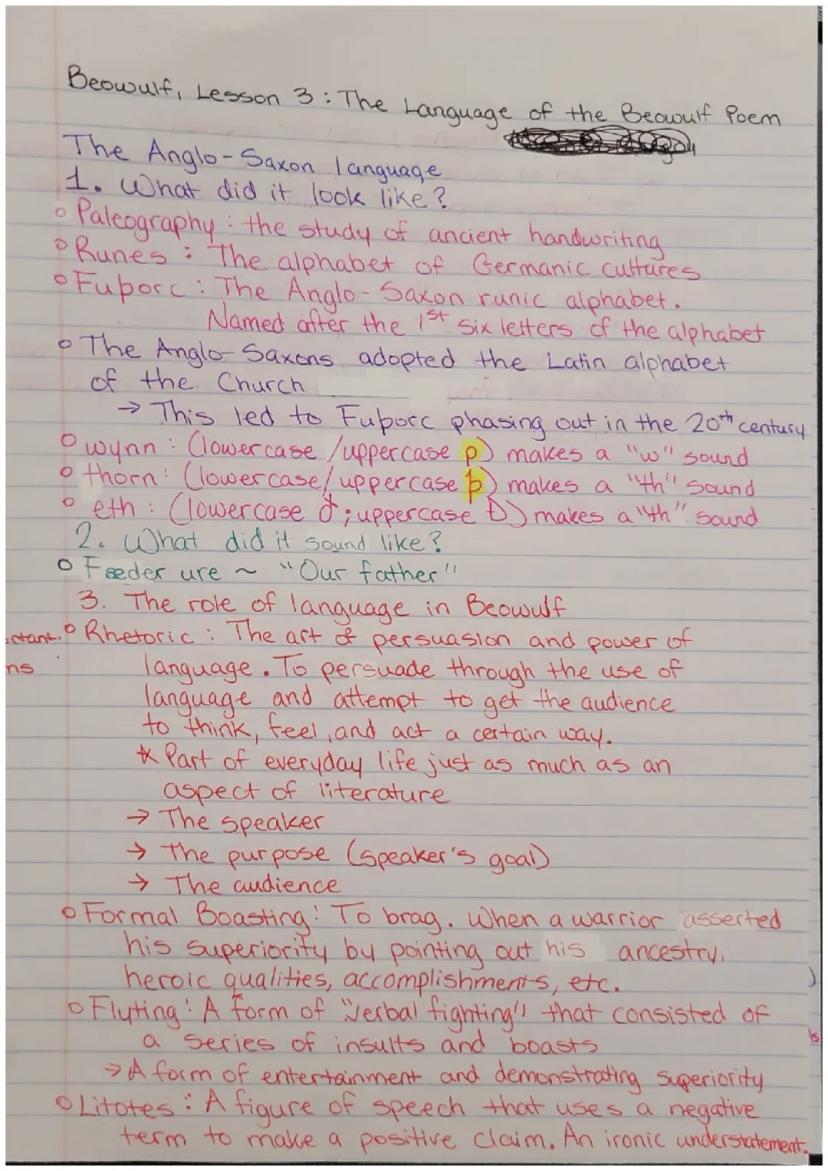 Beowulf, Lesson 3: The Language of the Beowulf Poem
The Anglo-Saxon language
1. What did it look like?
o Paleography: the study of ancient handwriting
o Runes: The alphabet of Germanic cultures
o Fuþorc: The Anglo-Saxon runic alphabet.
Named after the 1st six letters of the alphabet
o The Anglo-Saxons adopted the Latin alphabet
of the Church
→ This led to Fuþorc phasing out in the 20th century
o wynn: (lowercase/uppercase p) makes a "w" sound
o thorn: (lowercase/uppercase þ) makes a "th" sound
o eth: (lowercase ð; uppercase Ð) makes a "th" sound
2. What did it sound like?
o Fæder ure ~ "Our father"
3. The role of language in Beowulf
o Rhetoric: The art of persuasion and power of
language. To persuade through the use of
language and attempt to get the audience
to think, feel, and act a certain way.
* Part of everyday life just as much as an
aspect of literature
→ The speaker
→ The purpose (speaker's goal)
→ The audience
o Formal Boasting: To brag. When a warrior asserted
his superiority by pointing out his ancestry,
heroic qualities, accomplishments, etc.
o Flyting: A form of "verbal fighting" that consisted of
a series of insults and boasts
→ A form of entertainment and demonstrating superiority
o Litotes: A figure of speech that uses a negative
term to make a positive claim. An ironic understatement.